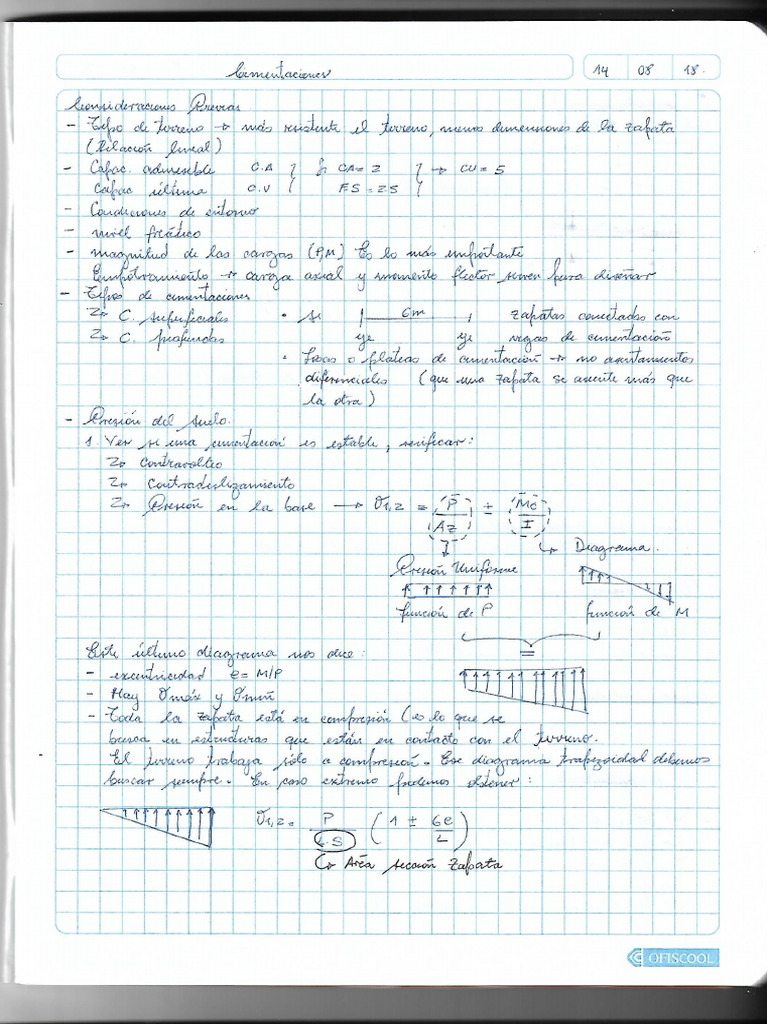 Cimentaciones 14 08 18.
Consideraciones Previas
- Tipo de terreno → más resistente el terreno, menos dimensiones de la zapata
(Relación lineal)
- Capac. admisible C.A } Si CA = 2 } → CU = 5
Capac última C.U } FS = 2.5 }
- Condiciones de entorno
- nivel freático
- magnitud de las cargas (P,M) Es lo más importante
Empotramiento → carga axial y momento flector sirven para diseñar
- Tipos de cimentaciones
→ C. superficiales • Si 6m zapatas conectadas con
→ C. profundas eje eje vigas de cimentación
• Losas o plateas de cimentación → no asentamientos
diferenciales (que una zapata se asiente más que
la otra)
- Presión del suelo.
1. Ver si una cimentación es estable, verificar:
→ Contravolteo
→ Contradeslizamiento
→ Presión en la base → σ1,2 = P/Az ± Mc/I
→ Diagrama.
Presión Uniforme
función de P función de M
=
Este último diagrama nos dice:
- excentricidad e = M/P
- Hay σmáx y σmín
- Toda la zapata está en compresión (es lo que se
busca en estructuras que están en contacto con el terreno.
El terreno trabaja sólo a compresión. Ese diagrama trapezoidal debemos
buscar siempre. En caso extremo podemos obtener:
σ1,2 = P/L.S (1 ± 6e/L)
→ Area sección zapata
OFISCOOL